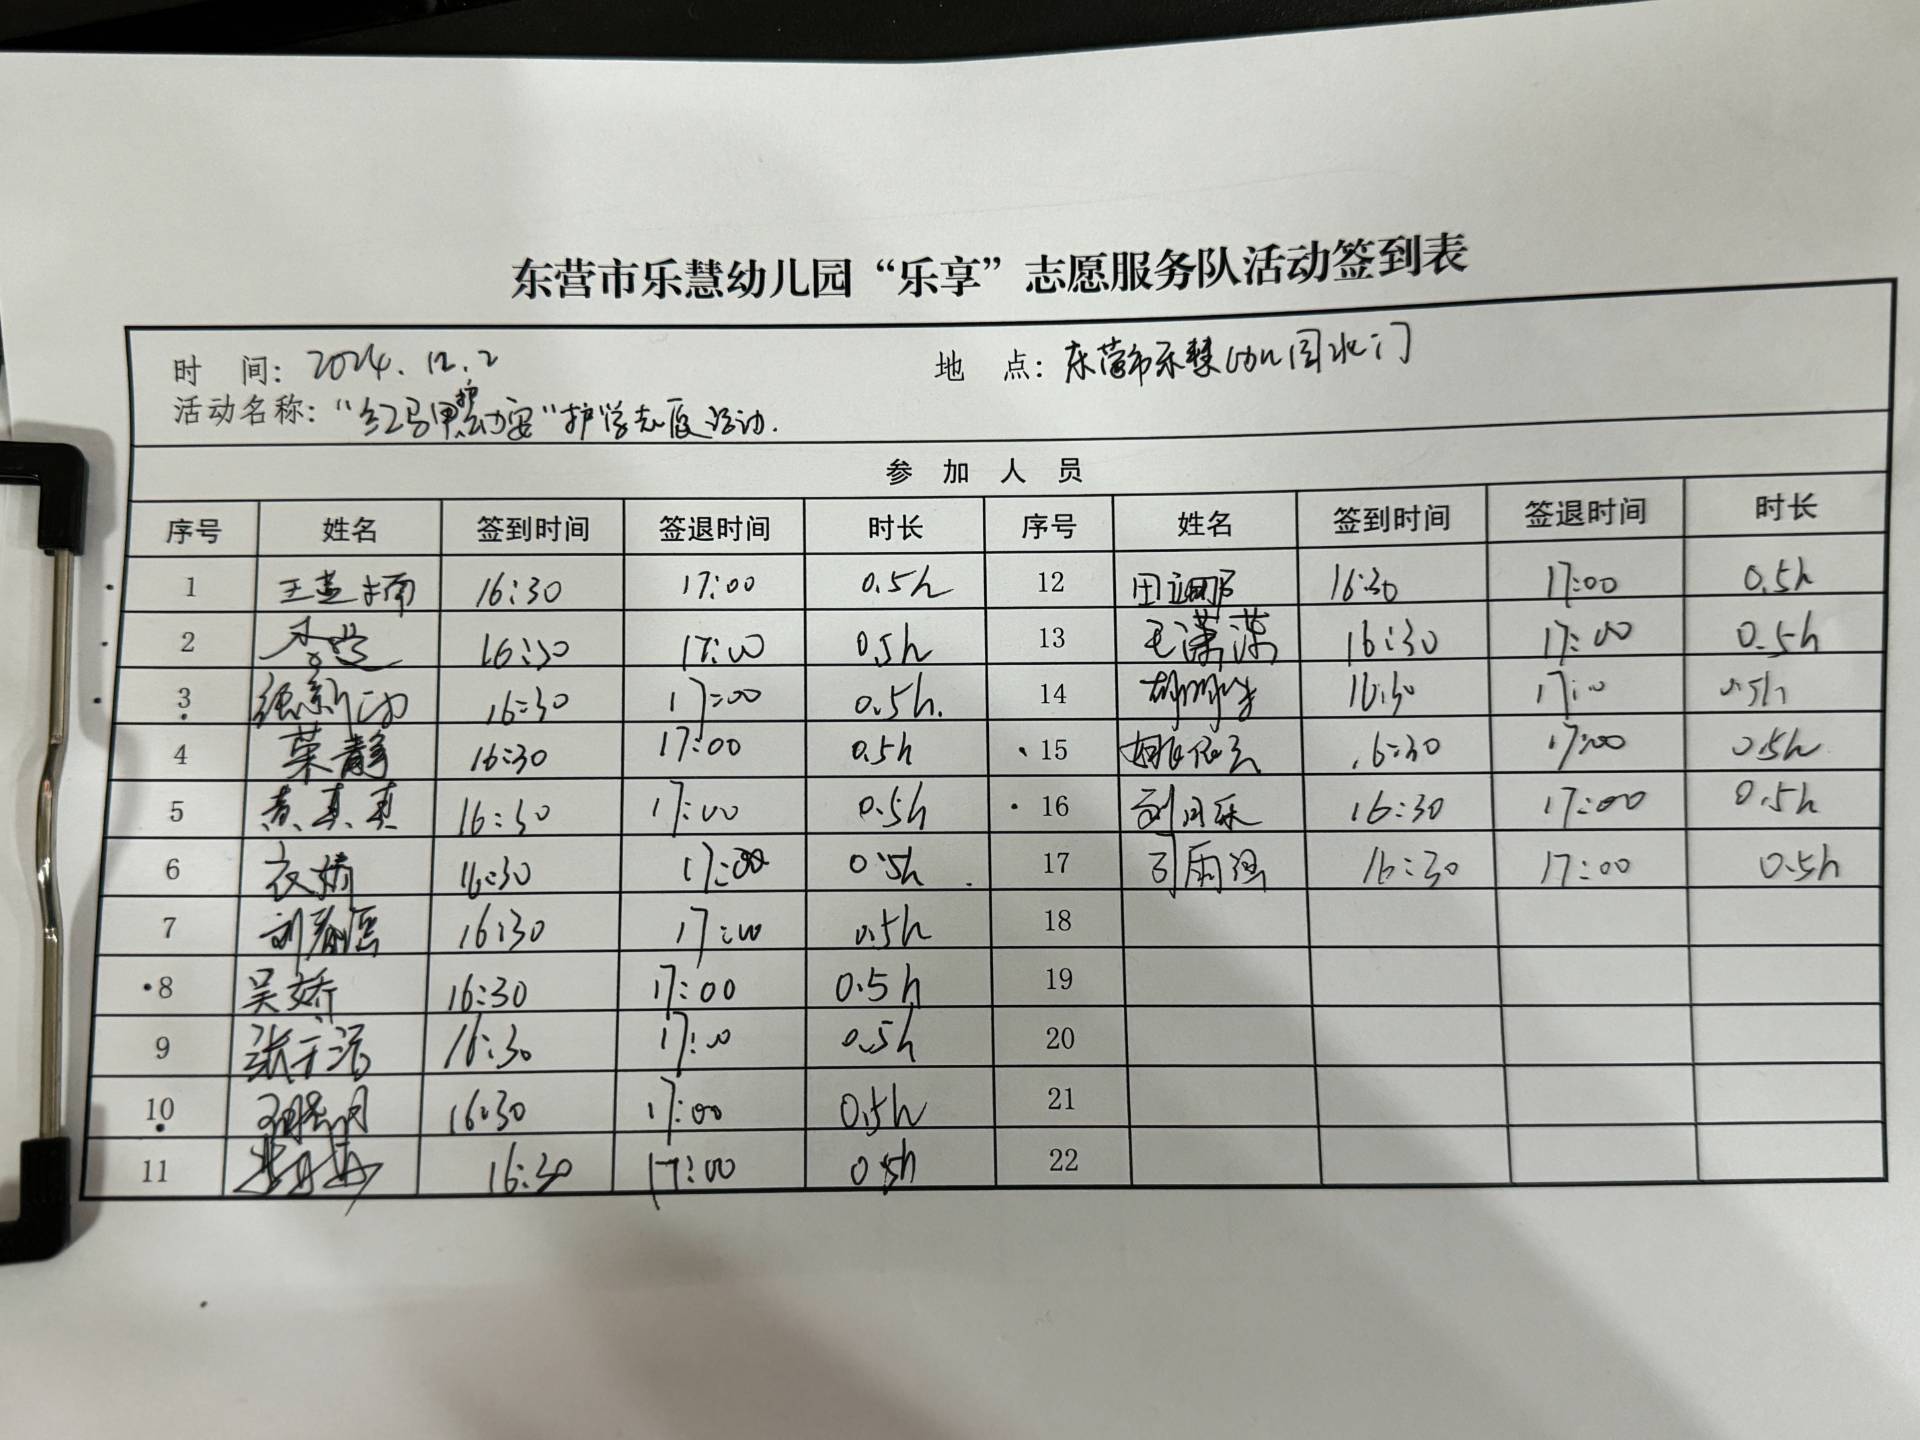 东营市乐慧幼儿园“乐享”志愿服务队活动签到表
时 间：2024.12.2 地 点：东营市乐慧幼儿园北门
活动名称：“红马甲护幼安”护学志愿活动.
参 加 人 员
序号 姓名 签到时间 签退时间 时长 序号 姓名 签到时间 签退时间 时长
1 王 16:30 17:00 0.5h 12 田 16:30 17:00 0.5h
2 16:30 17:00 0.5h 13 毛潇潇 16:30 17:00 0.5h
3 16:30 17:00 0.5h. 14 胡 16:30 17:00 0.5h
4 荣静 16:30 17:00 0.5h 15 姚 16:30 17:00 0.5h
5 黄真真 16:30 17:00 0.5h 16 16:30 17:00 0.5h
6 衣娇 16:30 17:00 0.5h 17 雨 16:30 17:00 0.5h
7 刘春 16:30 17:00 0.5h 18
8 吴娇 16:30 17:00 0.5h 19
9 张于洁 16:30 17:00 0.5h 20
10 16:30 17:00 0.5h 21
11 16:30 17:00 0.5h 22